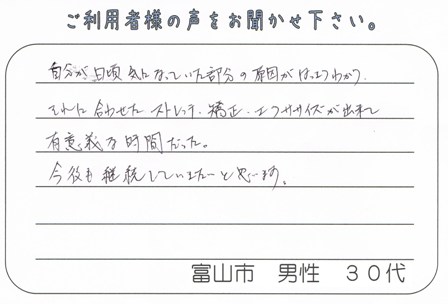 ご利用者様の声をお聞かせ下さい。
自分が日頃気になっていた部分の原因がはっきりわかり、
それに合わせたストレッチ・矯正・エクササイズが出来て
有意義な時間だった。
今後も継続していきたいと思います。
富山市 男性 30代